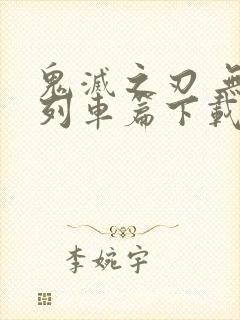 鬼滅之刃 無
列車篇下載
李婉宇